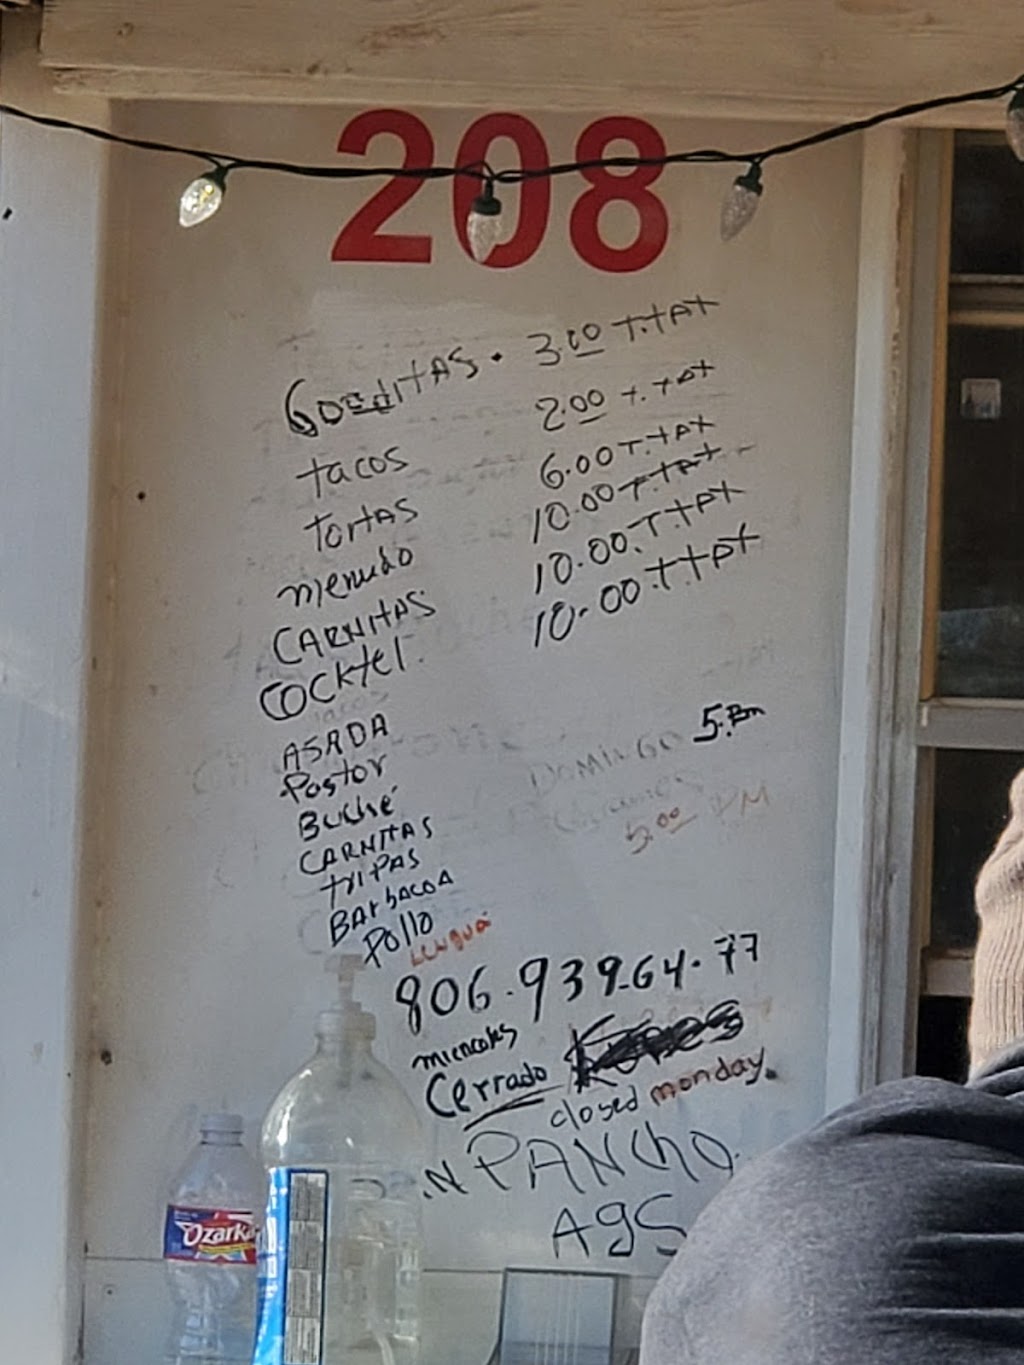 208
GORditAS. 3.00 T.tAX
tacos 2.00 t.tAX
TortAS 6.00 T.tAX
menudo 10.00 T.tAX
CARNitAS 10.00.T.tAX
COCKtel. 10.00.TtAX
ASADA
Pastor
Buche
CARNitAS
triPAS
BARbACOA
Pollo
Lengua
DOMiNGO 5.Pm
5.00 PM
806.939.64.77
miercoles
Cerrado
closed monday.
PANChO.
AgS
Ozarka